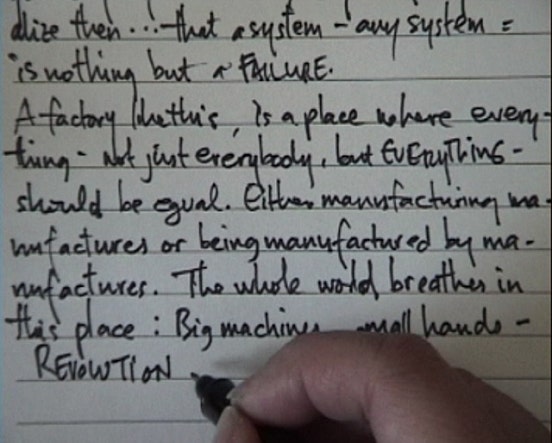 alize then...-that a system - any system =
is nothing but a FAILURE.
A factory like this, is a place where every-
thing - not just everybody, but EVERYTHING -
should be equal. Either manufacturing ma-
nufactures or being manufactured by ma-
nufactures. The whole world breathes in
this place: Big machines small hands -
REVOLUTION